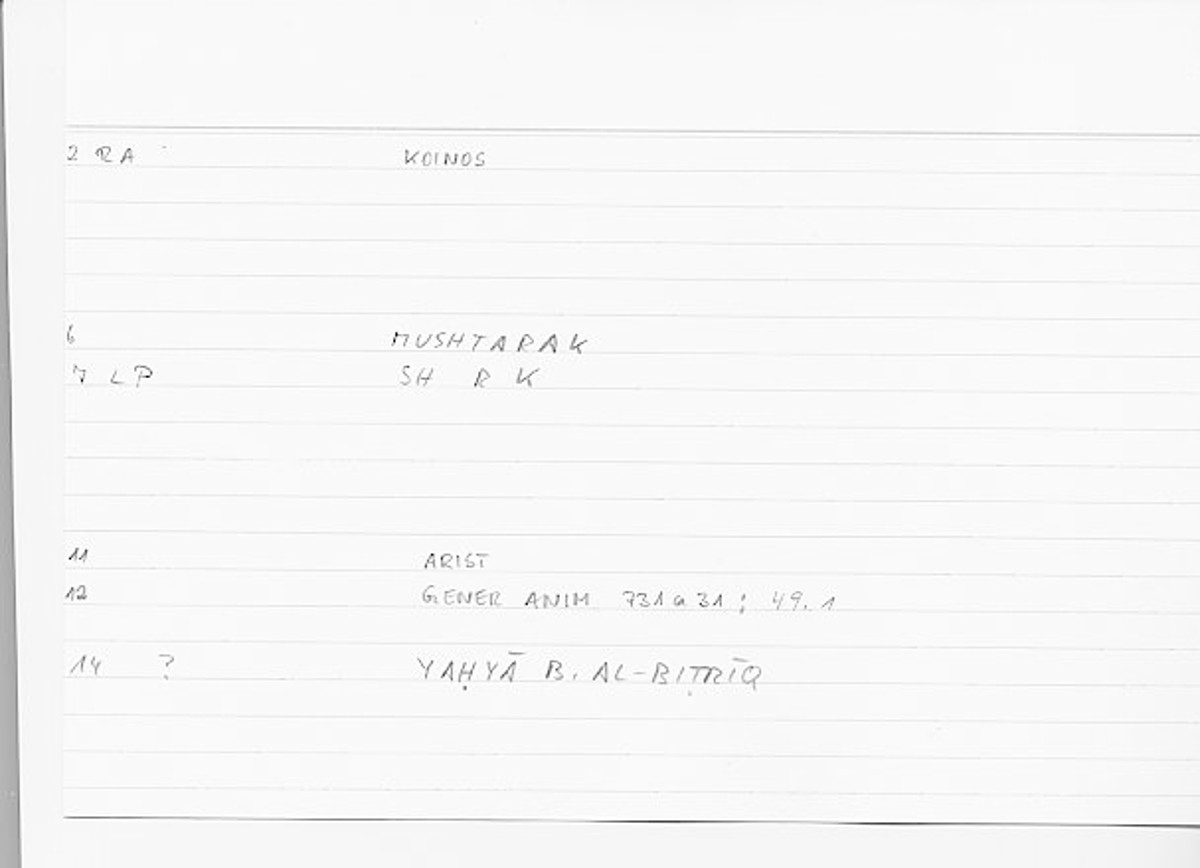 2 RA KOINOS
6 MUSHTARAK
7 LP SH R K
11 ARIST
12 GENER ANIM 731a31; 49.1
14 ? YAḤYĀ B. AL-BIṬRĪQ